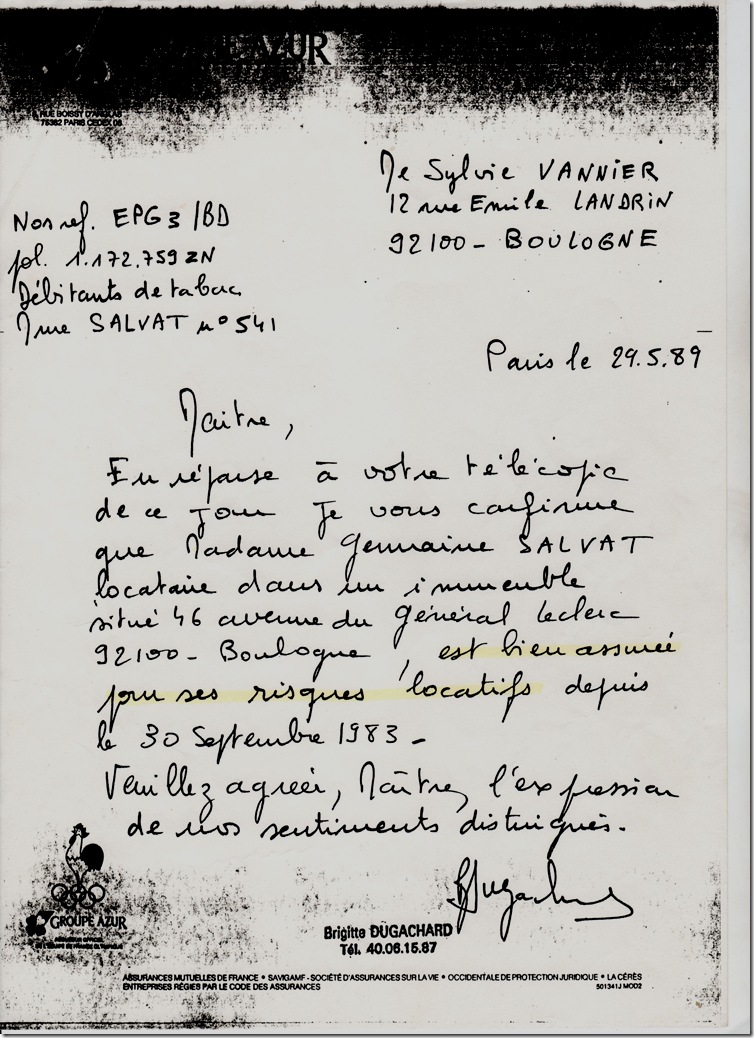 AZUR
RUE BOISSY D'ANGLAS
75362 PARIS CEDEX 08
Me Sylvie VANNIER
12 rue Emile LANDRIN
92100 - BOULOGNE
Nos ref. EPG3/BD
pol. 1.172.759 ZN
Débitants de tabac
Mme SALVAT n° 541
Paris le 29.5.89
Maitre,
En réponse à votre télécopie
de ce jour je vous confirme
que Madame Germaine SALVAT
locataire dans un immeuble
situé 46 avenue du Général Leclerc
92100 - Boulogne, est bien assurée
pour ses risques locatifs depuis
le 30 Septembre 1983 -
Veuillez agréer, Maître, l'expression
de nos sentiments distingués.
GROUPE AZUR
Brigitte DUGACHARD
Tél. 40.06.15.87
ASSURANCES MUTUELLES DE FRANCE • SAVIGAMF - SOCIÉTÉ D'ASSURANCES SUR LA VIE • OCCIDENTALE DE PROTECTION JURIDIQUE • LA CÉRÈS
ENTREPRISES RÉGIES PAR LE CODE DES ASSURANCES
501341J MOD2